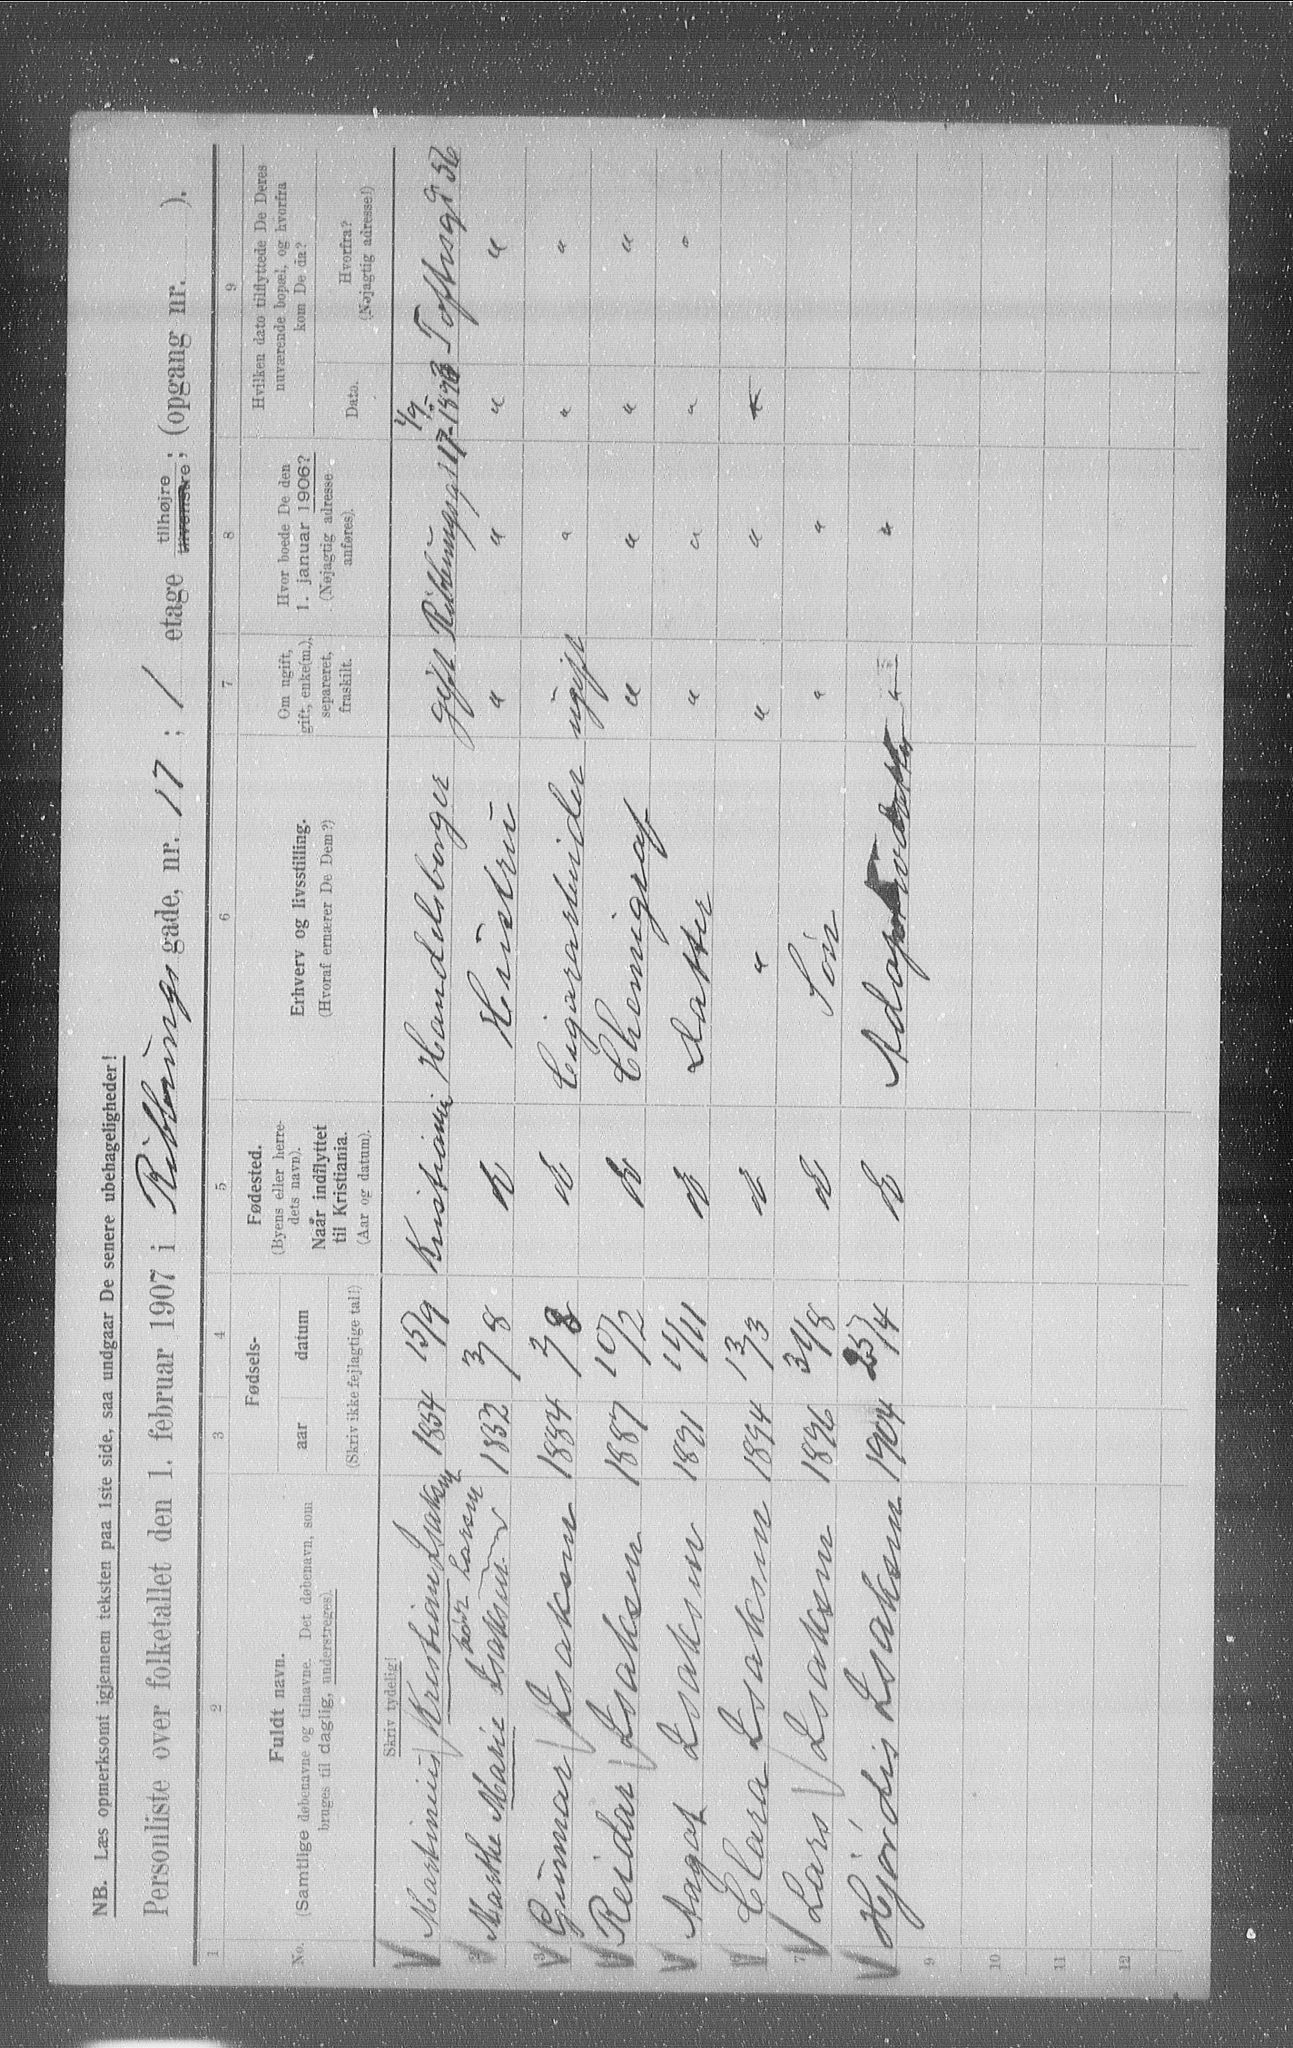 NB. Læs opmerksomt igjennem teksten paa 1ste side, saa undgaar De senere ubehageligheder!
Personliste over folketallet den 1. februar 1907 i Ribbungs gade, nr. 17 ; 1 etage tilhøjre tilvenstre; (opgang nr. ).
1 2 3 4 5 6 7 8 9
No.
Fuldt navn.
(Samtlige døbenavne og tilnavne. Det døbenavn, som
bruges til daglig, understreges).
Fødsels-
aar datum
(Skriv ikke fejlagtige tal!)
Fødested.
(Byens eller herre-
dets navn).
Naar indflyttet
til Kristiania.
(Aar og datum).
Erhverv og livsstilling.
(Hvoraf ernærer De Dem?)
Om ugift,
gift, enke(m.),
separeret,
fraskilt.
Hvor boede De den
1. januar 1906?
(Nøjagtig adresse
anføres).
Hvilken dato tilflyttede De Deres
nuværende bopæl, og hvorfra
kom De da?
Dato.
Hvorfra?
(Nøjagtig adresse!)
Skriv tydelig!
Martinius Kristian Isaksen 1854 15/9 Kristiania Handelsborger gift Ribbungsgs 17 1/9 Toftesgd 56
født Larsen
2 Marthe Marie Isaksen 3/8 Hustru " " " "
3 Gunnar Isaksen 1884 Cigararbeider ugift " " "
Reidar Isaksen 1887 10/2 Chemigraf " " " "
Aagot Isaksen 1891 14/11 Datter " " " "
Clara Isaksen 1894 13/3 " " " "
7 Lars Isaksen 1896 Søn " "
Hjørdis Isaksen 1904 25/4 " "
9
10
11
12